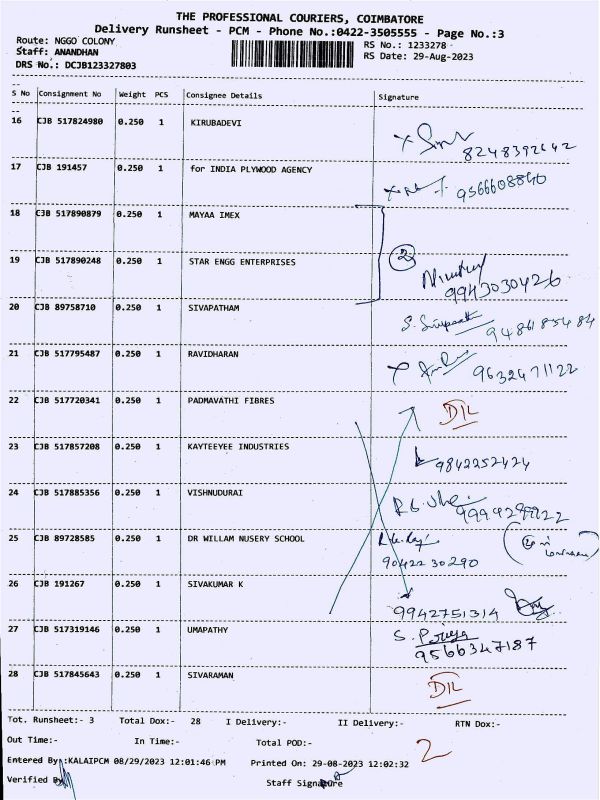 THE PROFESSIONAL COURIERS, COIMBATORE
Delivery Runsheet - PCM - Phone No.:0422-3505555 - Page No.:3
Route: NGGO COLONY
RS No.: 1233278
Staff: ANANDHAN
RS Date: 29-Aug-2023
DRS No.: DCJB123327803
S No Consignment No Weight PCS Consignee Details Signature
16 CJB 517824980 0.250 1 KIRUBADEVI
8248392642
17 CJB 191457 0.250 1 for INDIA PLYWOOD AGENCY
9566608840
18 CJB 517890879 0.250 1 MAYAA IMEX
2
19 CJB 517890248 0.250 1 STAR ENGG ENTERPRISES
9943030426
20 CJB 89758710 0.250 1 SIVAPATHAM
9486185484
21 CJB 517795487 0.250 1 RAVIDHARAN
9632471122
22 CJB 517720341 0.250 1 PADMAVATHI FIBRES
DIL
23 CJB 517857208 0.250 1 KAYTEEYEE INDUSTRIES
9842252424
24 CJB 517885356 0.250 1 VISHNUDURAI
25 CJB 89728585 0.250 1 DR WILLAM NUSERY SCHOOL
9042230290
26 CJB 191267 0.250 1 SIVAKUMAR K
9942751314
27 CJB 517319146 0.250 1 UMAPATHY
S. Poriya
9566347187
28 CJB 517845643 0.250 1 SIVARAMAN
DIL
Tot. Runsheet:- 3 Total Dox:- 28 I Delivery:- II Delivery:- RTN Dox:-
Out Time:- In Time:- Total POD:- 2
Entered By :KALAIPCM 08/29/2023 12:01:46 PM Printed On: 29-08-2023 12:02:32
Verified By Staff Signature